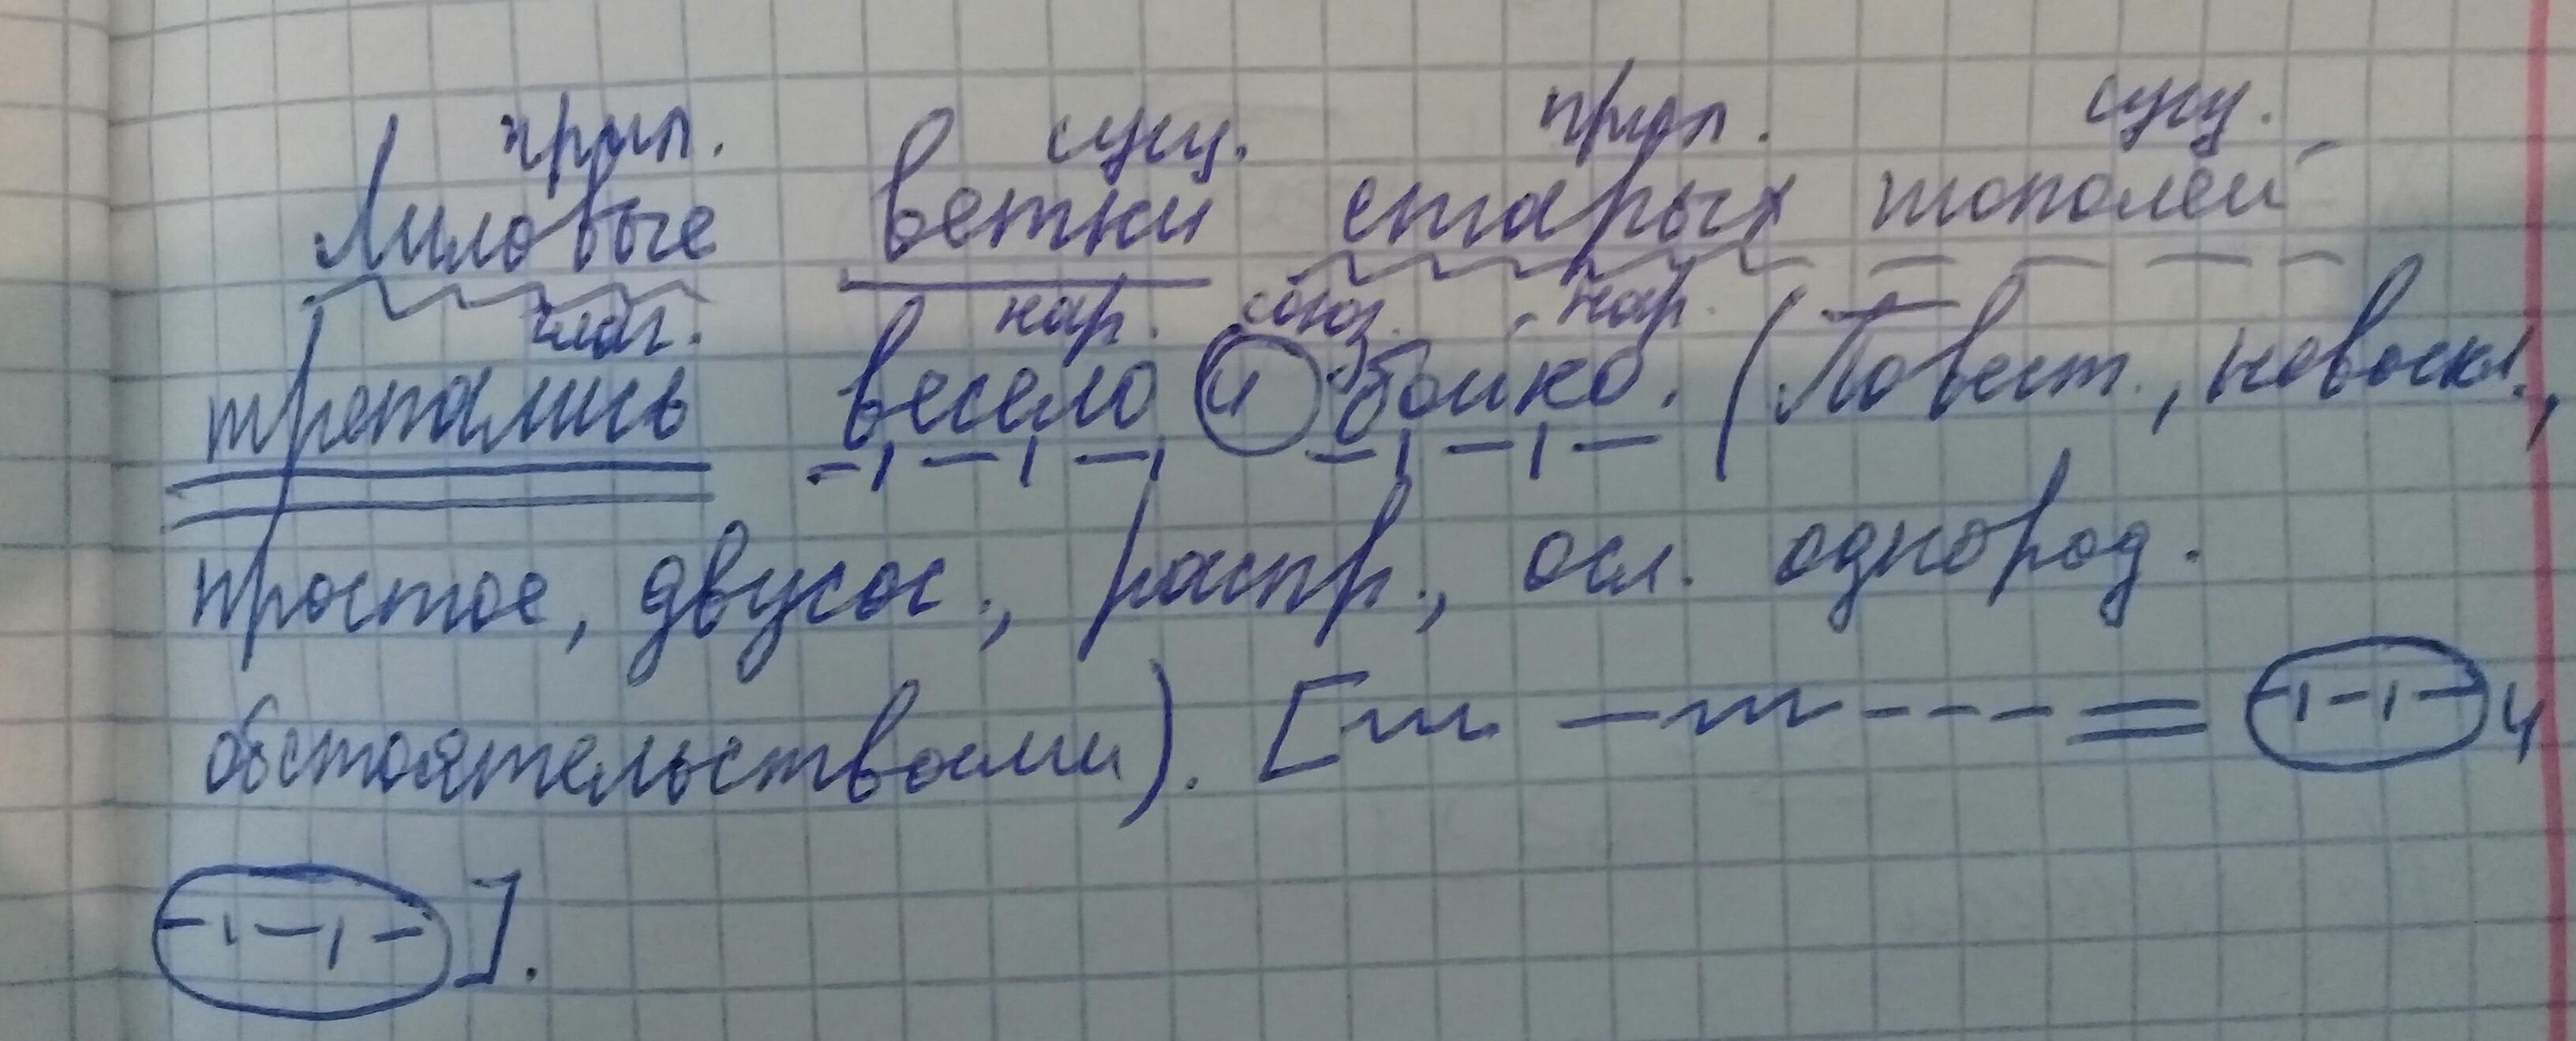 прил. сущ. прил. сущ.
Лиловые ветки старых тополей
глаг. нар. союз. нар.
трепались весело и бойко. (Повест., невоскл.,
простое, двусос., распр., осл. однород.
обстоятельствами). [ и
].